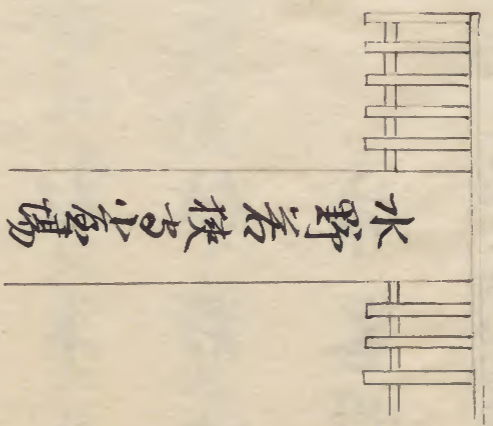 水野若狭守小屋場